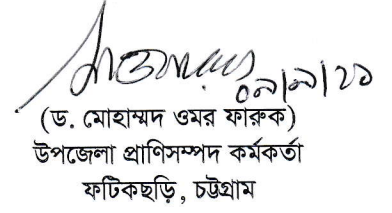 ০৯/৯/২১
(ড. মোহাম্মদ ওমর ফারুক)
উপজেলা প্রাণিসম্পদ কর্মকর্তা
ফটিকছড়ি, চট্টগ্রাম